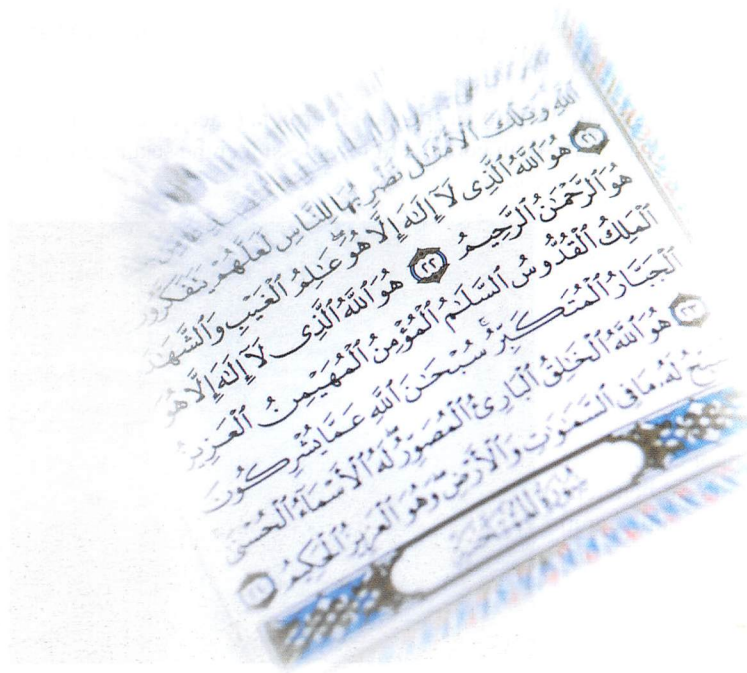 ٱللَّهِ وَتِلْكَ ٱلْأَمْثَٰلُ نَضْرِبُهَا لِلنَّاسِ لَعَلَّهُمْ يَتَفَكَّرُونَ
﴿٢١﴾ هُوَ ٱللَّهُ ٱلَّذِى لَآ إِلَٰهَ إِلَّا هُوَ عَٰلِمُ ٱلْغَيْبِ وَٱلشَّهَٰدَ
هُوَ ٱلرَّحْمَٰنُ ٱلرَّحِيمُ ﴿٢٢﴾ هُوَ ٱللَّهُ ٱلَّذِى لَآ إِلَٰهَ إِلَّا هُوَ
ٱلْمَلِكُ ٱلْقُدُّوسُ ٱلسَّلَٰمُ ٱلْمُؤْمِنُ ٱلْمُهَيْمِنُ ٱلْعَزِيزُ
ٱلْجَبَّارُ ٱلْمُتَكَبِّرُ ۚ سُبْحَٰنَ ٱللَّهِ عَمَّا يُشْرِكُونَ
﴿٢٣﴾ هُوَ ٱللَّهُ ٱلْخَٰلِقُ ٱلْبَارِئُ ٱلْمُصَوِّرُ ۖ لَهُ ٱلْأَسْمَآءُ ٱلْحُسْنَىٰ
يُسَبِّحُ لَهُۥ مَا فِى ٱلسَّمَٰوَٰتِ وَٱلْأَرْضِ ۖ وَهُوَ ٱلْعَزِيزُ ٱلْحَكِيمُ ﴿٢٤﴾
سُورَةُ ٱلْمُمْتَحَنَةِ